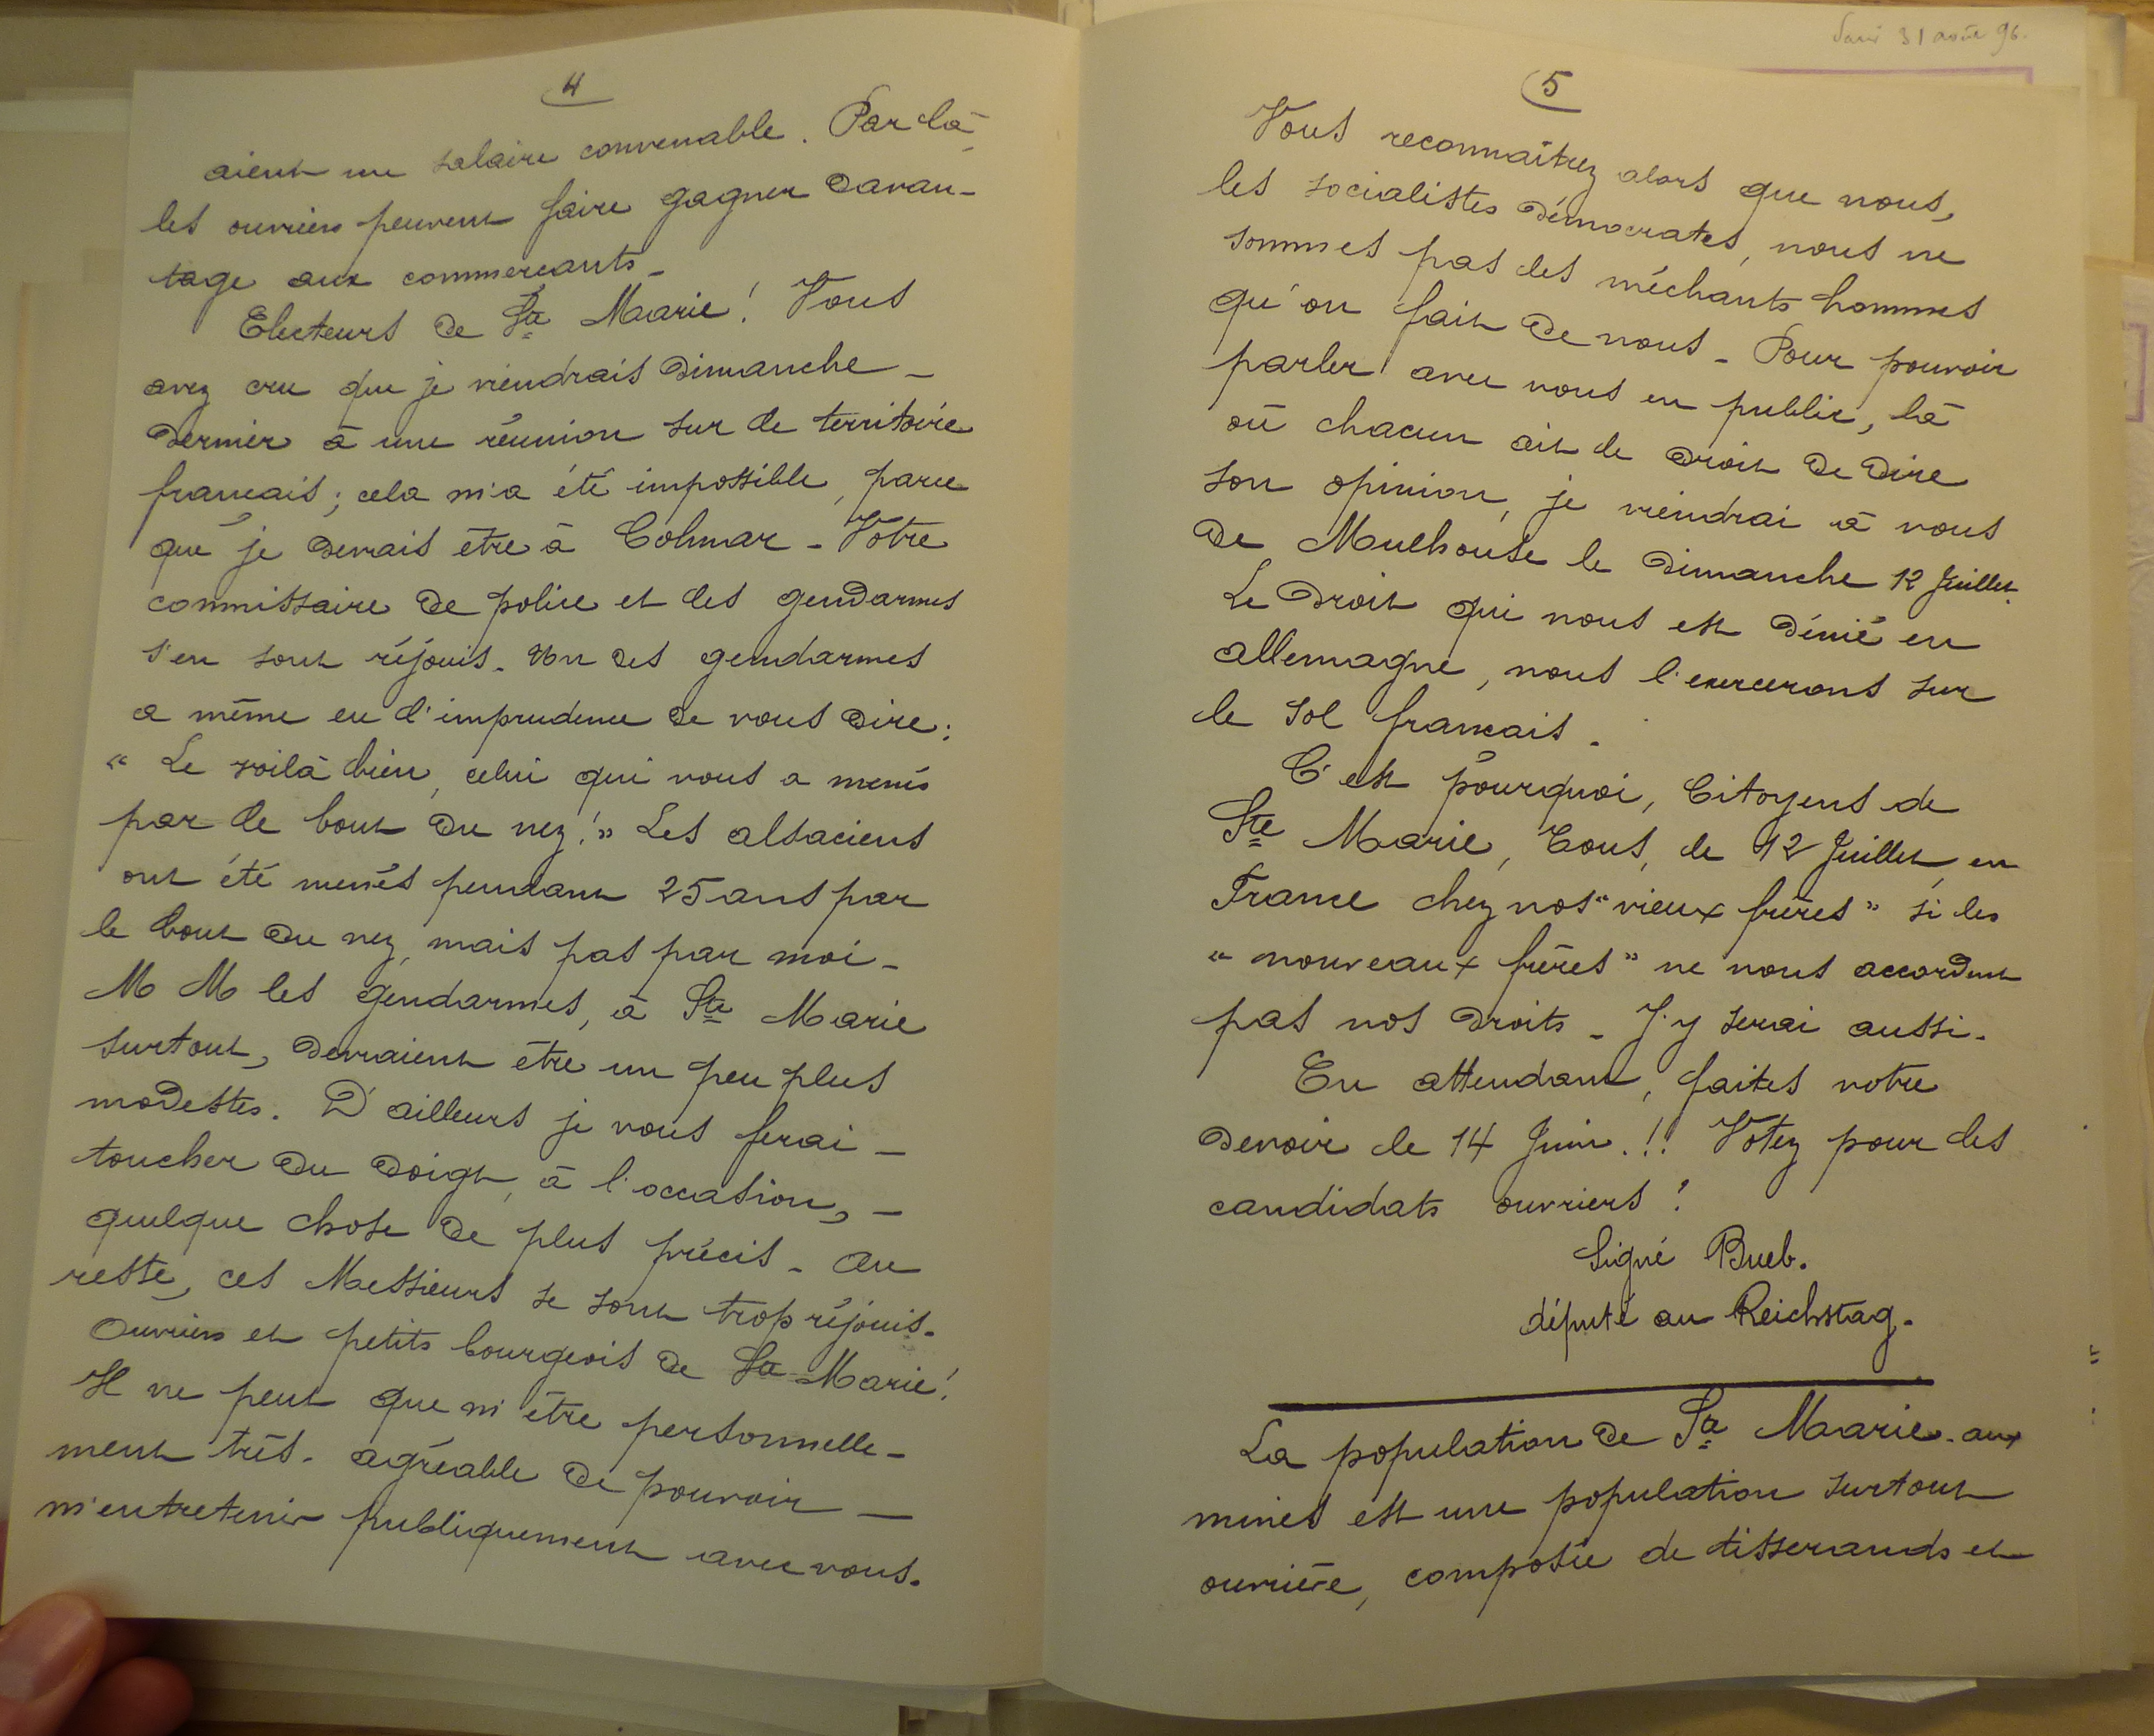 4
aient un salaire convenable. Par là
les ouvriers peuvent faire gagner davan-
tage aux commerçants.
Electeurs de Ste Marie! Vous
avez cru que je viendrais Dimanche
dernier à une réunion sur le territoire
français; cela m'a été impossible, parce
que je devais être à Colmar - Votre
commissaire de police et les gendarmes
s'en sont réjouis. Un des gendarmes
a même eu l'imprudence de vous dire:
« Le voilà bien, celui qui vous a menés
par le bout du nez!» Les alsaciens
ont été menés pendant 25 ans par
le bout du nez, mais pas par moi -
M M les gendarmes, à Ste Marie
surtout, devraient être un peu plus
modestes. D'ailleurs je vous ferai -
toucher du doigt, à l'occasion, -
quelque chose de plus précis - Au
reste, ces Messieurs se sont trop réjouis.
Ouvriers et petits bourgeois de Ste Marie!
Il ne peut que m'être personnelle-
ment très-agréable de pouvoir -
m'entretenir publiquement avec vous.
31 août 96.
5
Vous reconnaîtrez alors que nous,
les socialistes démocrates, nous ne
sommes pas les méchants hommes
qu'on fait de nous - Pour pouvoir
parler avec vous en public, là
où chacun ait le droit de dire
son opinion, je viendrai à vous
de Mulhouse le Dimanche 12 Juillet.
Le droit qui nous est dénié en
allemagne, nous l'exercerons sur
le sol français.
C'est pourquoi, Citoyens de
Ste Marie, Tous, le 12 Juillet, en
France chez nos "vieux frères" si les
« nouveaux frères » ne nous accordent
pas nos droits - J'y serai aussi.
En attendant, faites votre
devoir le 14 Juin.!! Votez pour les
candidats ouvriers!
Signé Bueb.
député au Reichstag.
La population de Ste Marie-aux
mines est une population surtout
ouvrière, composée de tisserands et